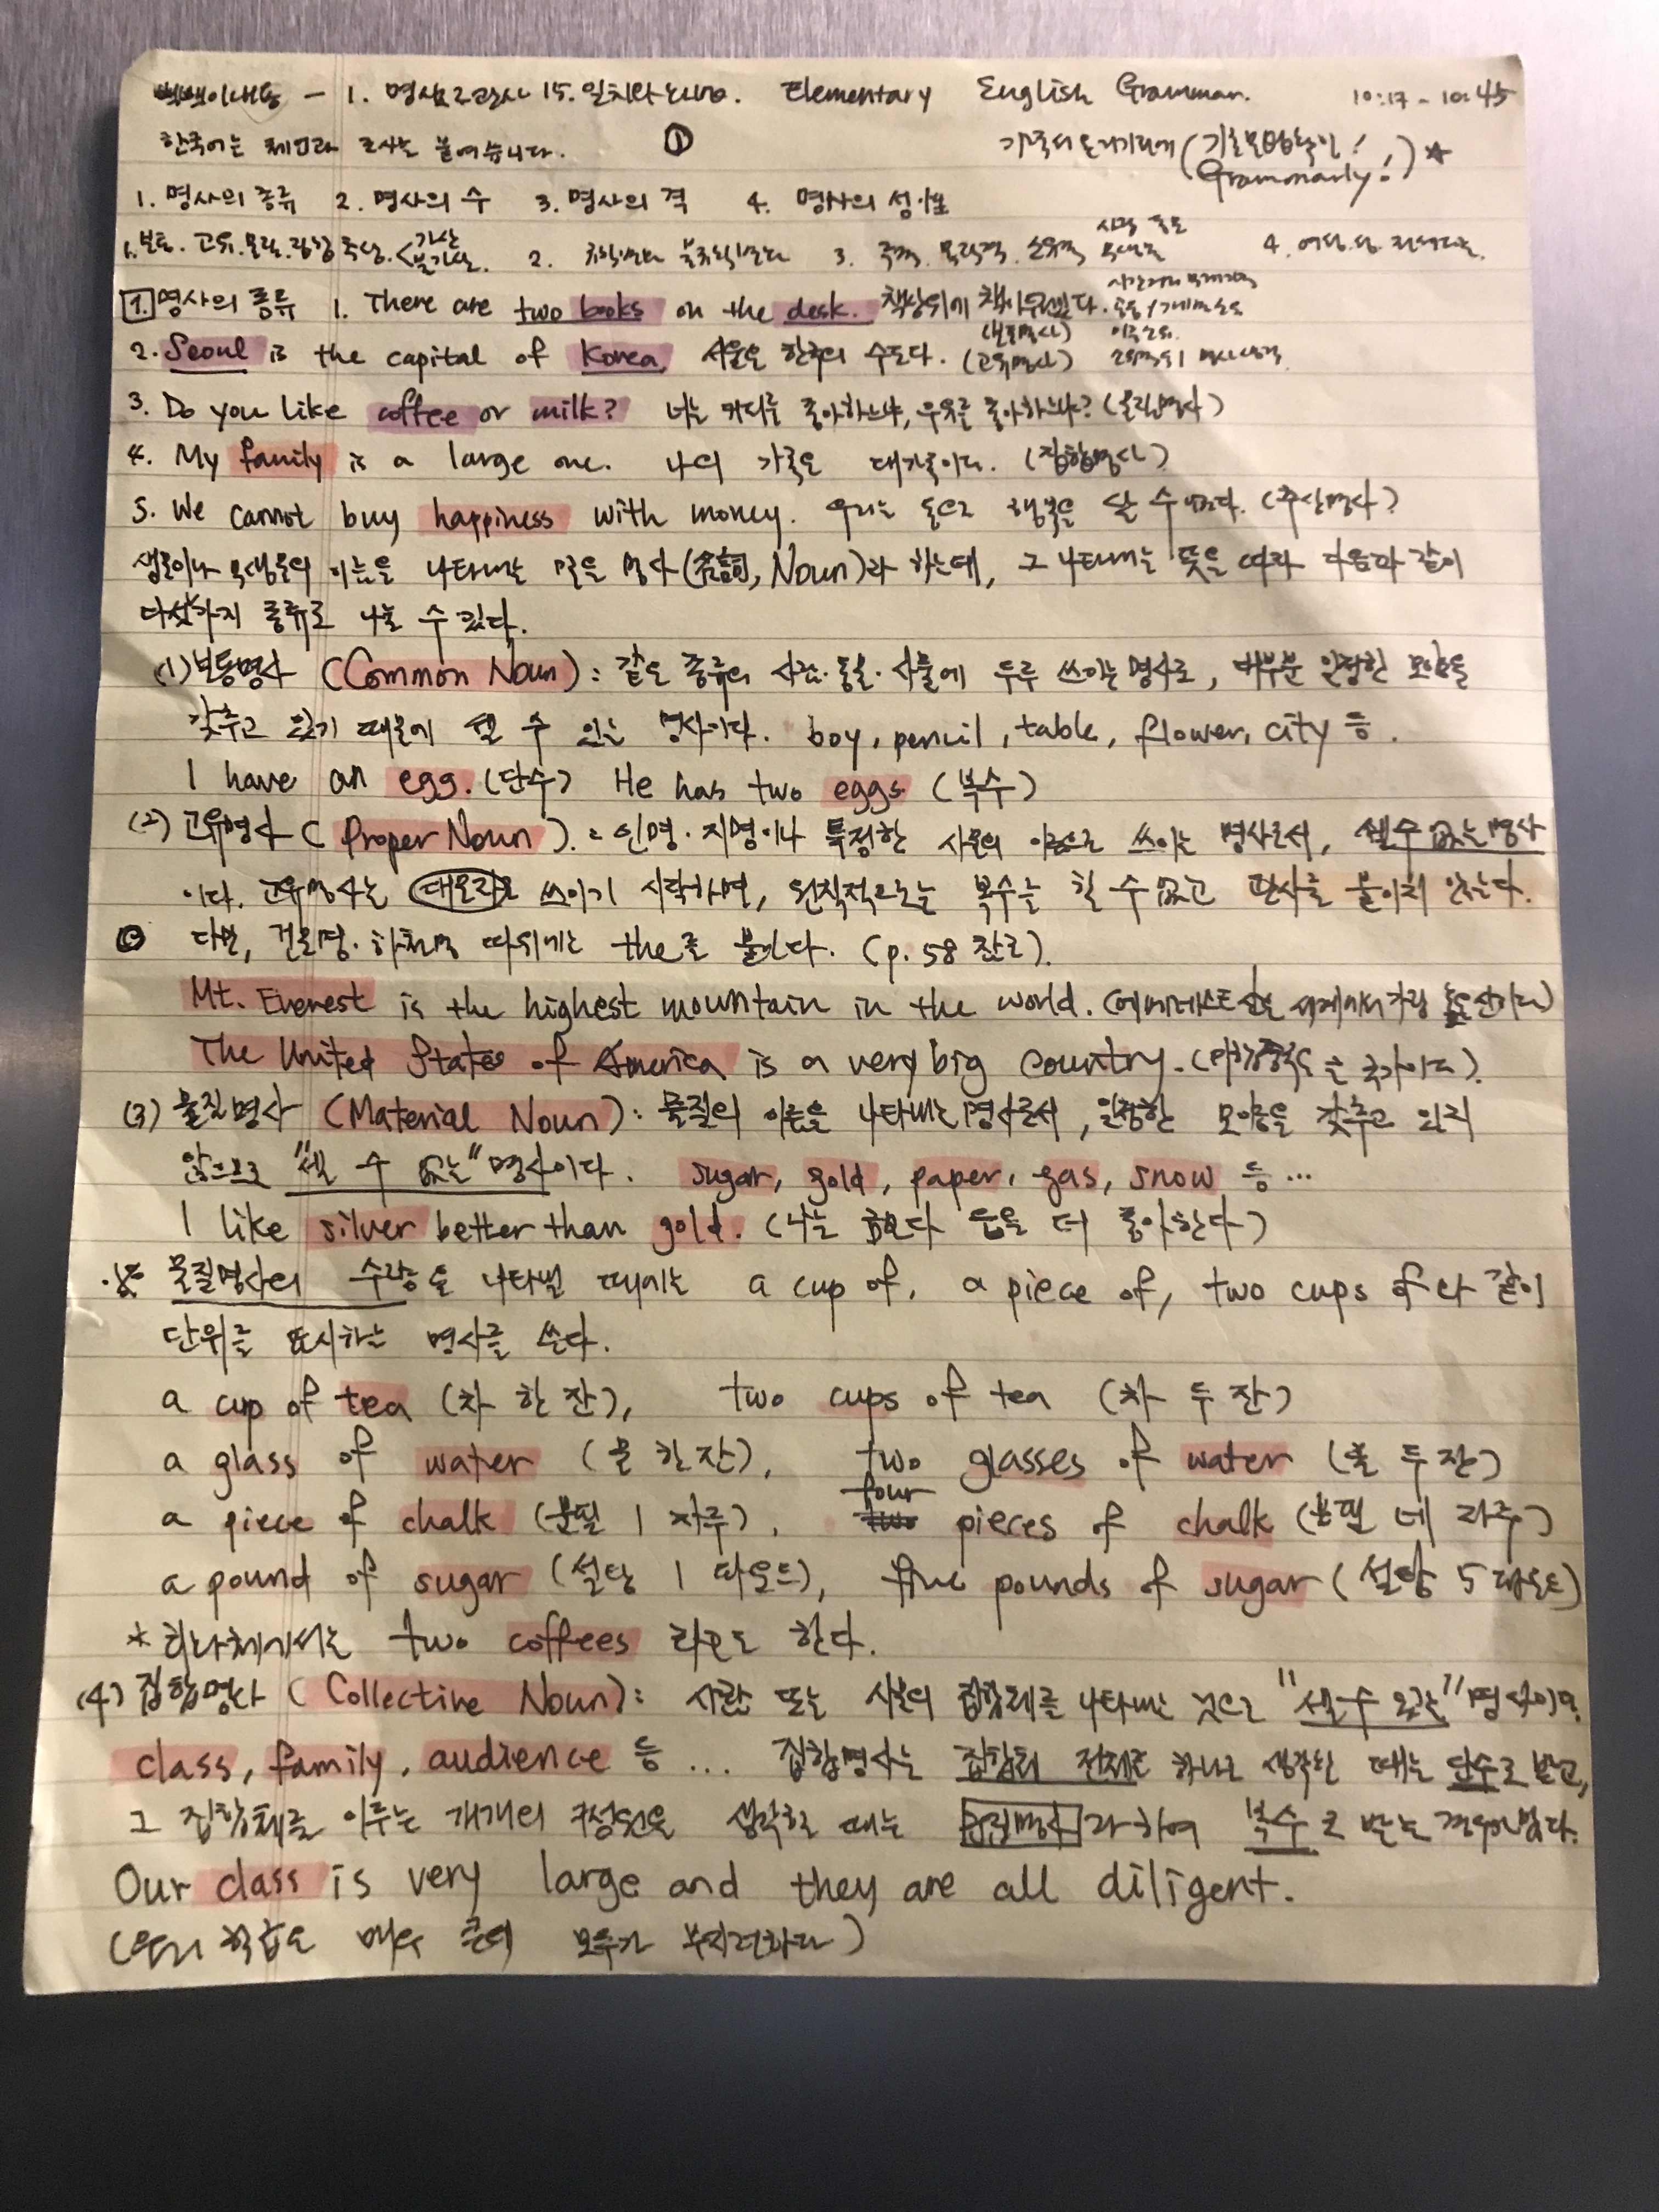 1. 명사 15. 일치와 Elementary English Grammar. 10:17 - 10:45
한국어는 조사는 ①
(기초문법확인! Grammarly!) *
1. 명사의 종류 2. 명사의 수 3. 명사의 격 4. 명사의 성
1. 보통. 고유. 물질. 집합. 추상. < 가산 불가산. 2. 규칙변화 불규칙변화 3. 주격. 목적격. 소유격 4.
1. 명사의 종류 1. There are two books on the desk. 책상위에 책이 (보통명사)
2. Seoul is the capital of Korea. 서울은 한국의 수도다. (고유명사)
3. Do you like coffee or milk? 너는 커피를 좋아하느냐, 우유를 좋아하느냐? (물질명사)
4. My family is a large one. 나의 가족은 대가족이다. (집합명사)
5. We cannot buy happiness with money. 우리는 돈으로 행복을 살 수 없다. (추상명사)
생물이나 무생물의 이름을 나타내는 말을 명사(名詞, Noun)라 하는데, 그 나타내는 뜻을 따라 다음과 같이
다섯가지 종류로 나눌 수 있다.
(1) 보통명사 (Common Noun) : 같은 종류의 사람·동물·사물에 두루 쓰이는 명사로, 대부분 일정한 모양을
갖추고 있기 때문에 셀 수 있는 명사이다. boy, pencil, table, flower, city 등.
I have an egg. (단수) He has two eggs (복수)
(2) 고유명사 (Proper Noun). : 인명·지명이나 특정한 사물의 이름으로 쓰이는 명사로서, 셀 수 없는 명사
이다. 고유명사는 대문자로 쓰이기 시작하며, 원칙적으로는 복수는 할 수 없고 관사를 붙이지 않는다.
다만, 건물명· 따위에는 the를 붙인다. (p. 58 참조).
Mt. Everest is the highest mountain in the world. (에베레스트 산은 세계에서 가장 높은 산이다)
The United States of America is a very big country. ( 국가이다).
(3) 물질명사 (Material Noun) : 물질의 이름을 나타내는 명사로서, 일정한 모양을 갖추고 있지
않으므로 "셀 수 없는" 명사이다. sugar, gold, paper, gas, snow 등 ...
I like silver better than gold. (나는 금보다 은을 더 좋아한다)
※ 물질명사의 수량을 나타낼 때에는 a cup of, a piece of, two cups of 와 같이
단위를 표시하는 명사를 쓴다.
a cup of tea (차 한 잔), two cups of tea (차 두 잔)
a glass of water (물 한 잔), two glasses of water (물 두 잔)
a piece of chalk (분필 1 자루), four pieces of chalk (분필 네 자루)
a pound of sugar (설탕 1 파운드), five pounds of sugar (설탕 5 파운드)
* 회화체에서는 two coffees 라고도 한다.
(4) 집합명사 (Collective Noun) : 사람 또는 사물의 집합체를 나타내는 것으로 "셀 수 있는" 명사이다.
class, family, audience 등 ... 집합명사는 집합체 전체를 하나로 생각할 때는 단수로 받고,
그 집합체를 이루는 개개의 구성원을 생각할 때는 군집명사라 하여 복수로 받는 경우가 많다.
Our class is very large and they are all diligent.
(우리 학급은 매우 크며 모두가 부지런하다)